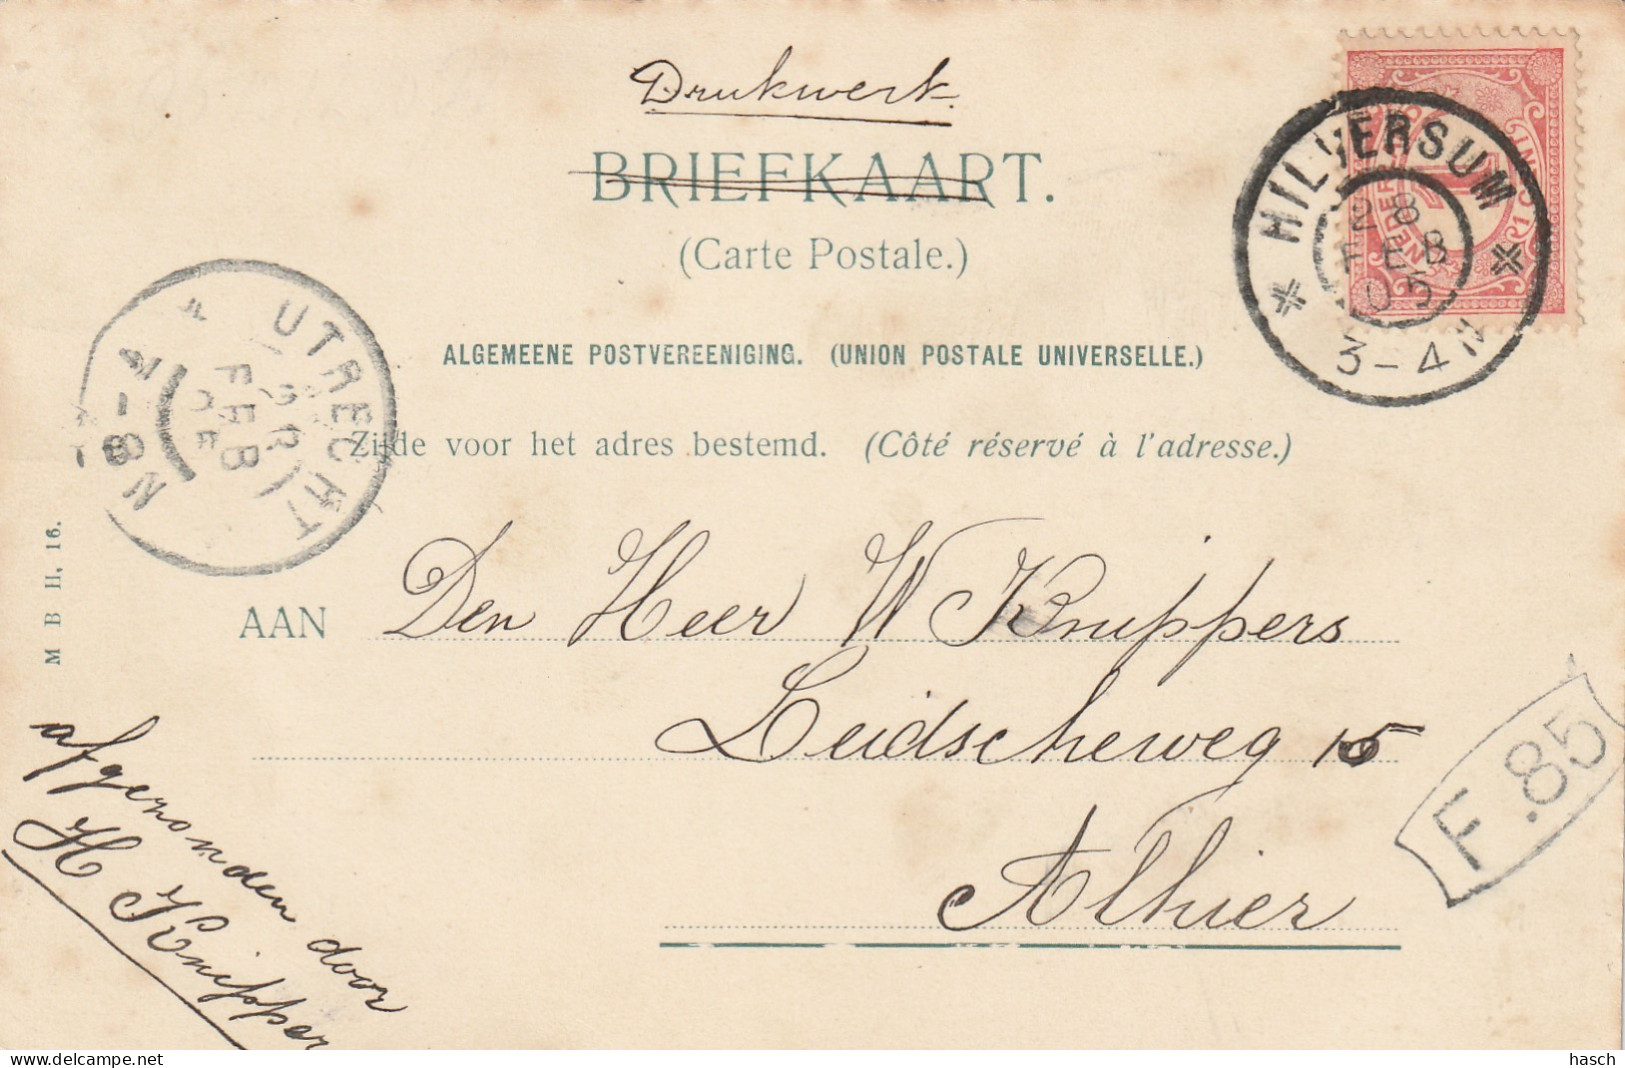 Drukwerk
BRIEFKAART.
(Carte Postale.)
ALGEMEENE POSTVEREENIGING. (UNION POSTALE UNIVERSELLE.)
Zijde voor het adres bestemd. (Côté réservé à l'adresse.)
HILVERSUM
28
FEB
05
3-4 N
UTRECHT
FEB
8-9 N
M B II, 16.
AAN Den Heer W Knippers
Leidscheweg 15
Alhier
F.85
afgezonden door
H Knipper
hasch